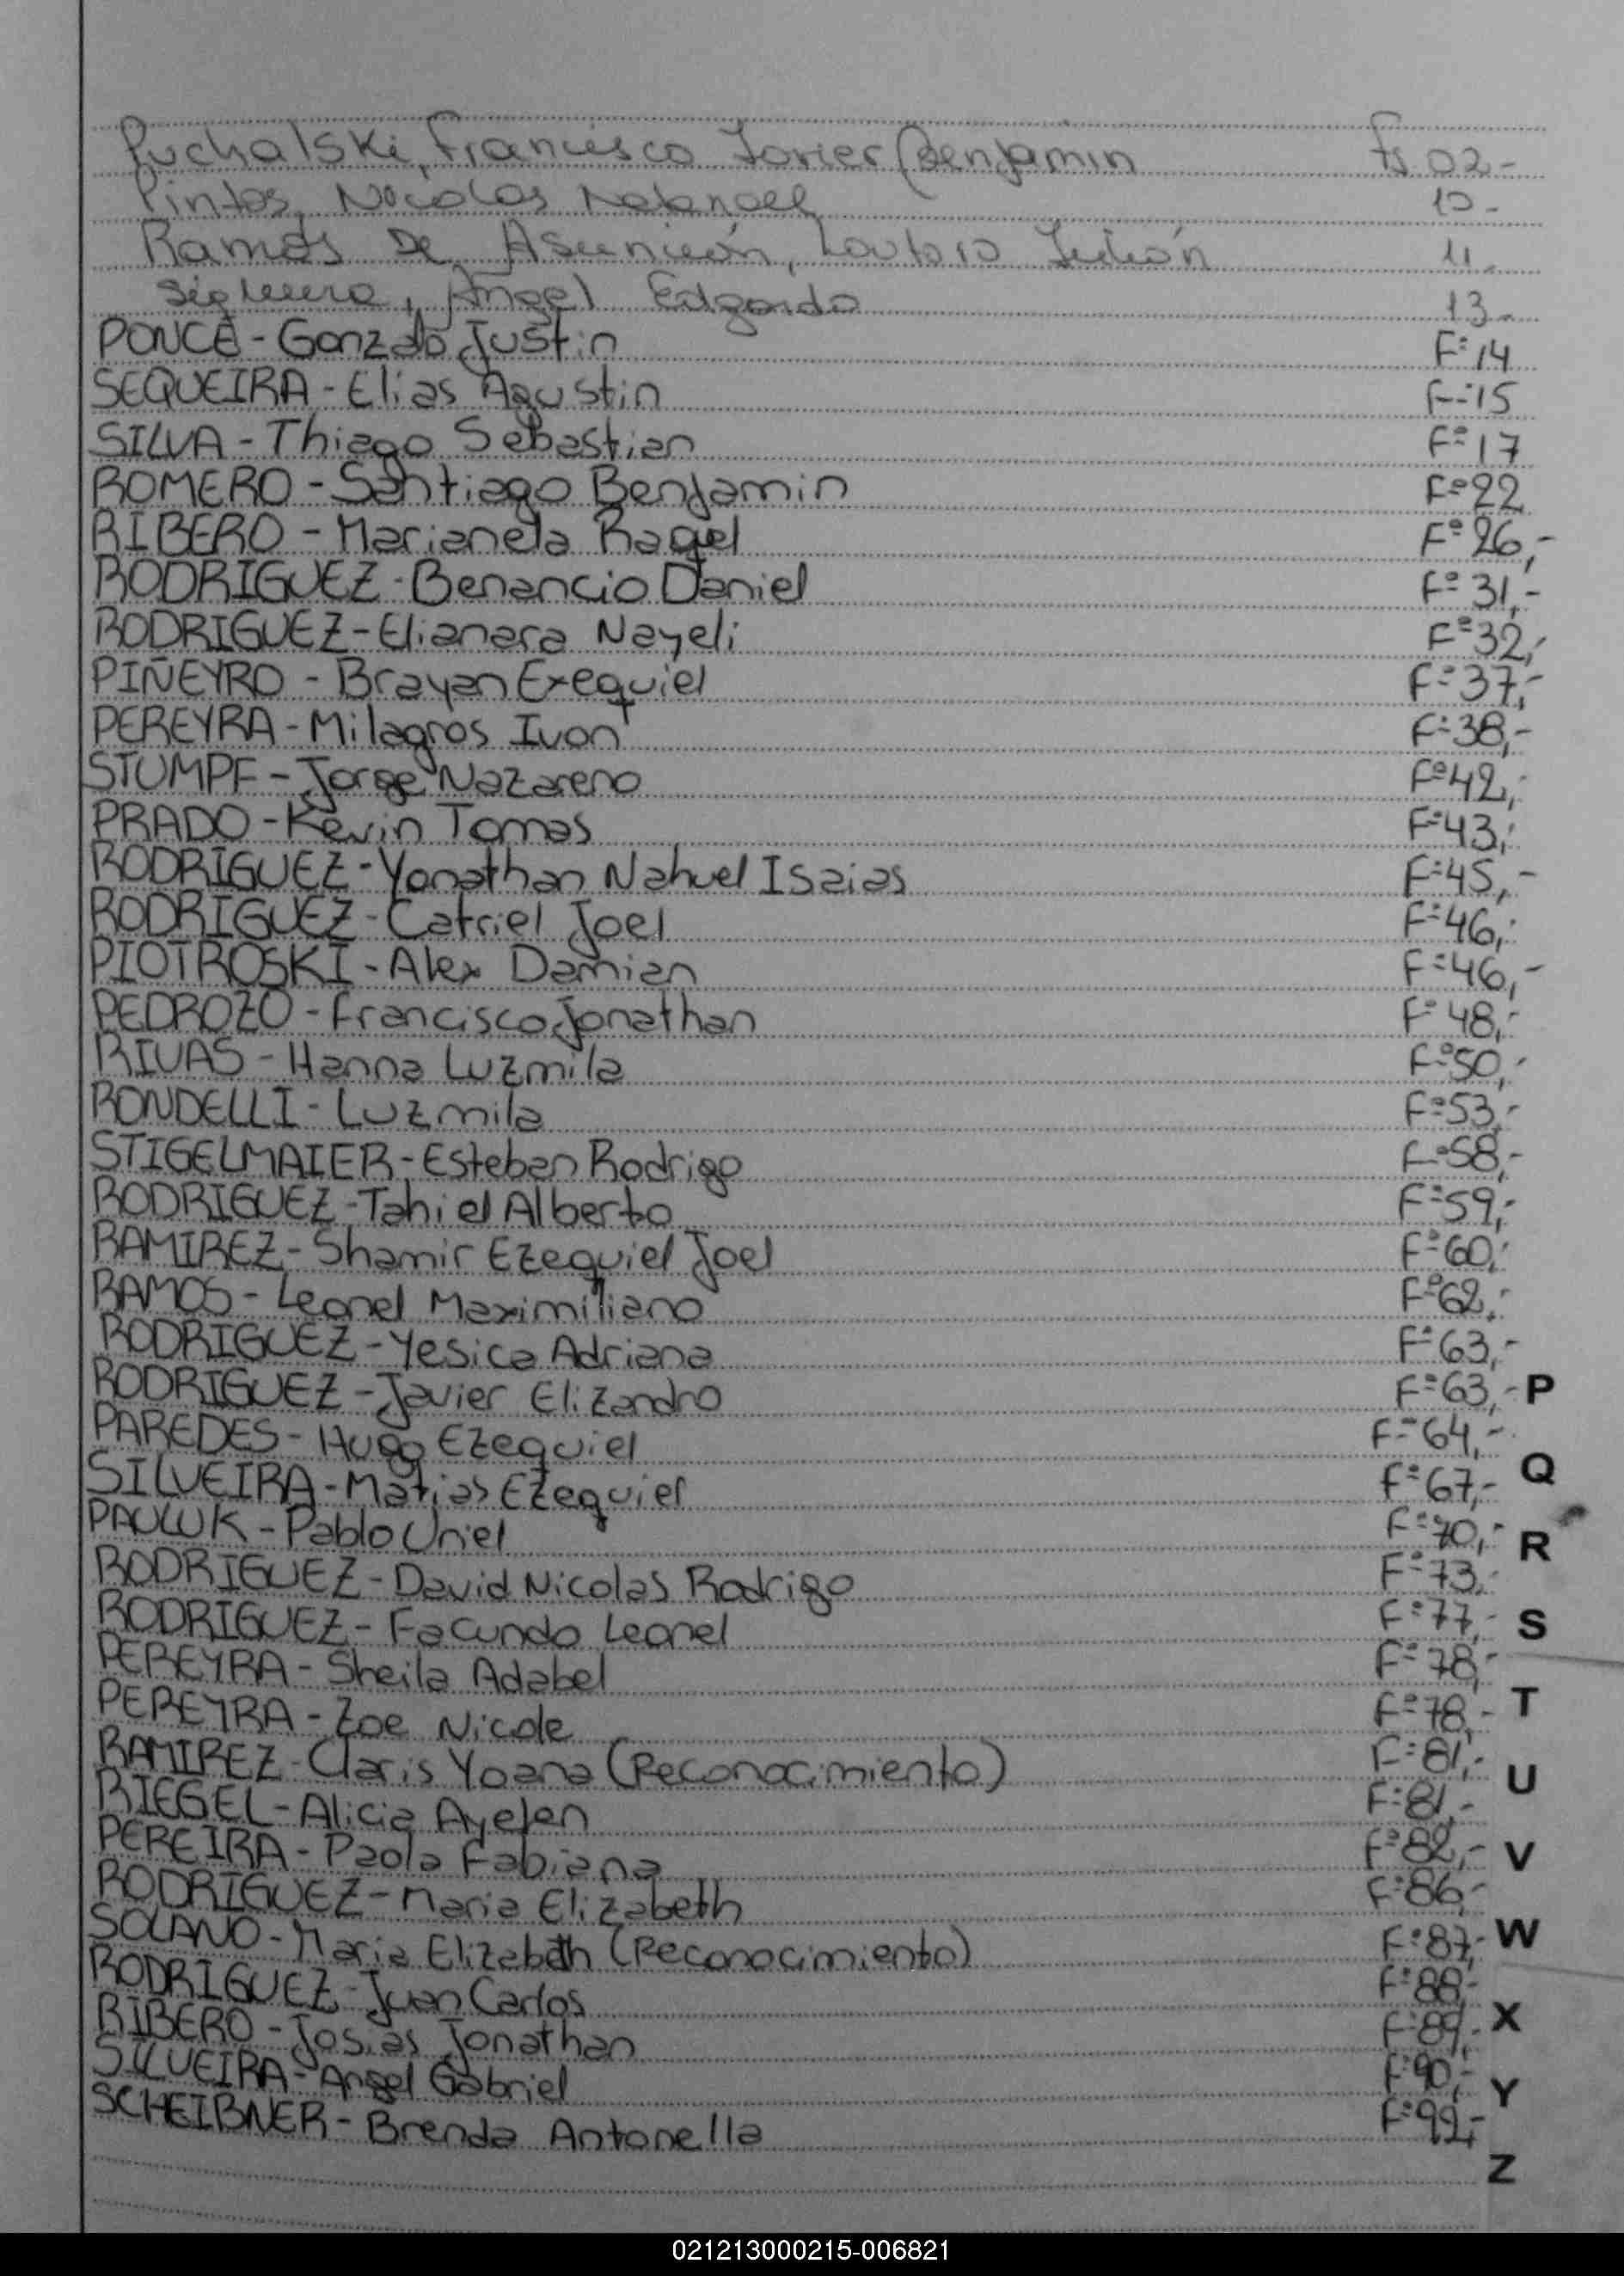 Puchalski, Francisco Javier Benjamin Fs. 02-
Pintos, Nicolas Natanael 10-
Ramos De Asunción, Lautaro Julián 11-
Siqueira, Angel Edgardo 13-
PONCE - Gonzalo Justin Fº 14
SEQUEIRA - Elias Agustin Fº 15
SILVA - Thiago Sebastian Fº 17
ROMERO - Santiago Benjamin Fº 22
RIBERO - Marianela Raquel Fº 26,-
RODRIGUEZ - Benancio Daniel Fº 31,-
RODRIGUEZ - Elianara Nayeli Fº 32,-
PIÑEYRO - Brayan Exequiel Fº 37,-
PEREYRA - Milagros Ivon Fº 38,-
STUMPF - Jorge Nazareno Fº 42,-
PRADO - Kevin Tomas Fº 43,-
RODRIGUEZ - Yonathan Nahuel Isaias Fº 45,-
RODRIGUEZ - Catriel Joel Fº 46,-
PIOTROSKI - Alex Damian Fº 46,-
PEDROZO - Francisco Jonathan Fº 48,-
RIVAS - Hanna Luzmila Fº 50,-
RONDELLI - Luzmila Fº 53,-
STIGELMAIER - Esteban Rodrigo Fº 58,-
RODRIGUEZ - Tahiel Alberto Fº 59,-
RAMIREZ - Shamir Ezequiel Joel Fº 60,-
RAMOS - Leonel Maximiliano Fº 62,-
RODRIGUEZ - Yesica Adriana Fº 63,-
RODRIGUEZ - Javier Elizandro Fº 63,- P
PAREDES - Hugo Ezequiel Fº 64,-
SILVEIRA - Matias Ezequiel Fº 67,- Q
PAWLUK - Pablo Uriel Fº 70,-
RODRIGUEZ - David Nicolas Rodrigo Fº 73,- R
RODRIGUEZ - Facundo Leonel Fº 77,- S
PEREYRA - Sheila Adabel Fº 78,-
PEREYRA - Zoe Nicole Fº 78,- T
RAMIREZ - Claris Yoana (Reconocimiento) Fº 81,-
RIEGEL - Alicia Ayelen Fº 81,- U
PEREIRA - Paola Fabiana Fº 82,- V
RODRIGUEZ - Maria Elizabeth Fº 86,-
SOLANO - Maria Elizabeth (Reconocimiento) Fº 87,- W
RODRIGUEZ - Juan Carlos Fº 88-
RIBERO - Josias Jonathan Fº 89,- X
SILVEIRA - Angel Gabriel Fº 90,-
SCHEIBNER - Brenda Antonella Fº 92,- Y
Z
021213000215-006821